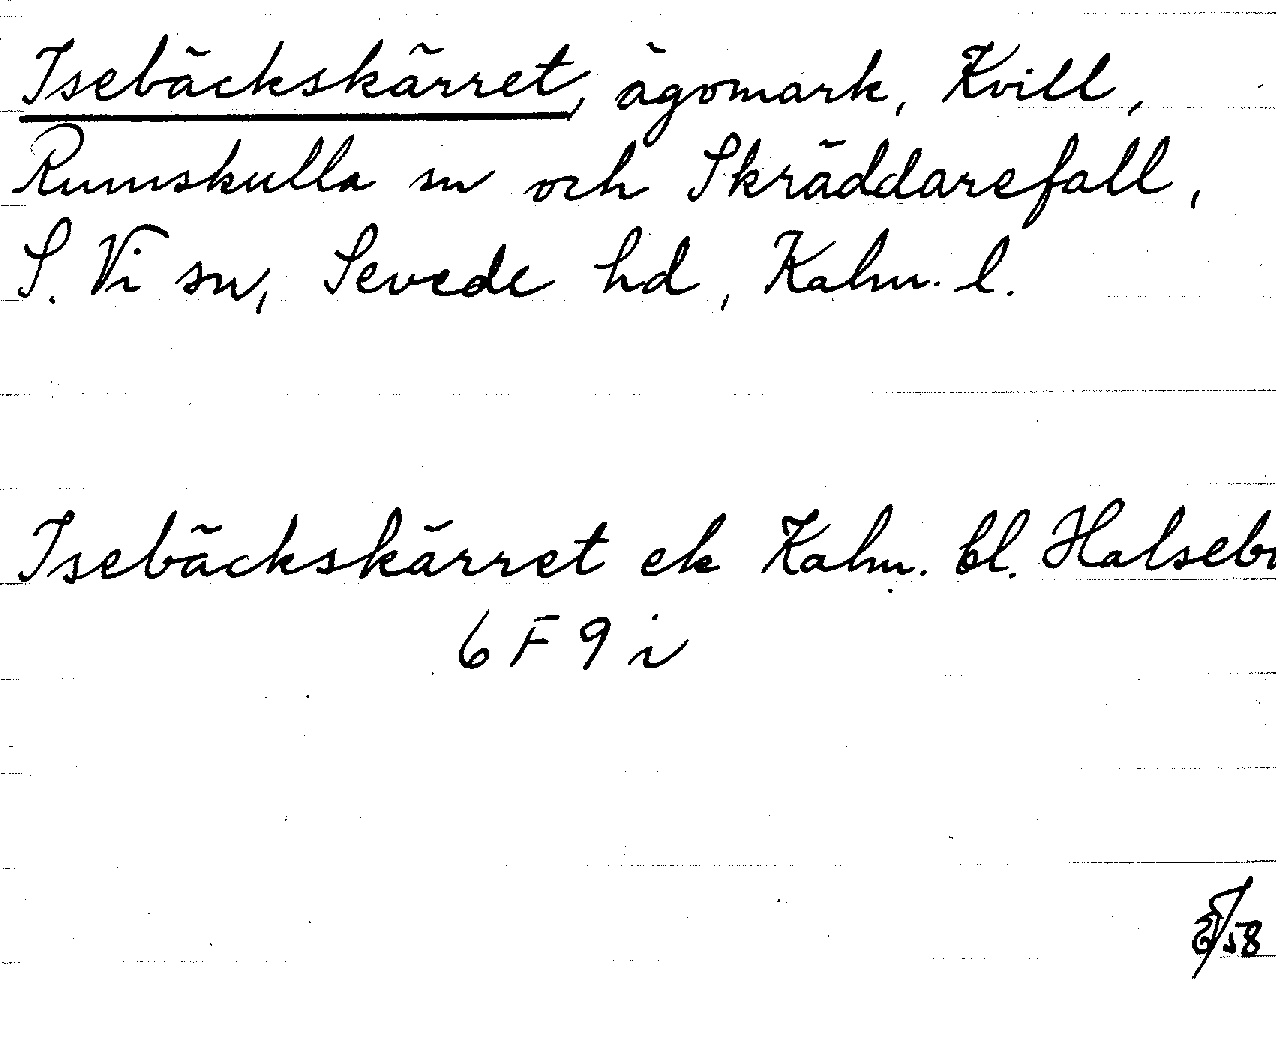 Isebäckskärret, ägomark, Kvill,
Rumskulla sn och Skräddarefall,
S. Vi sn, Sevede hd, Kalm. l.
Isebäckskärret ek Kalm. bl. Halsebo
6 F 9 i
/58